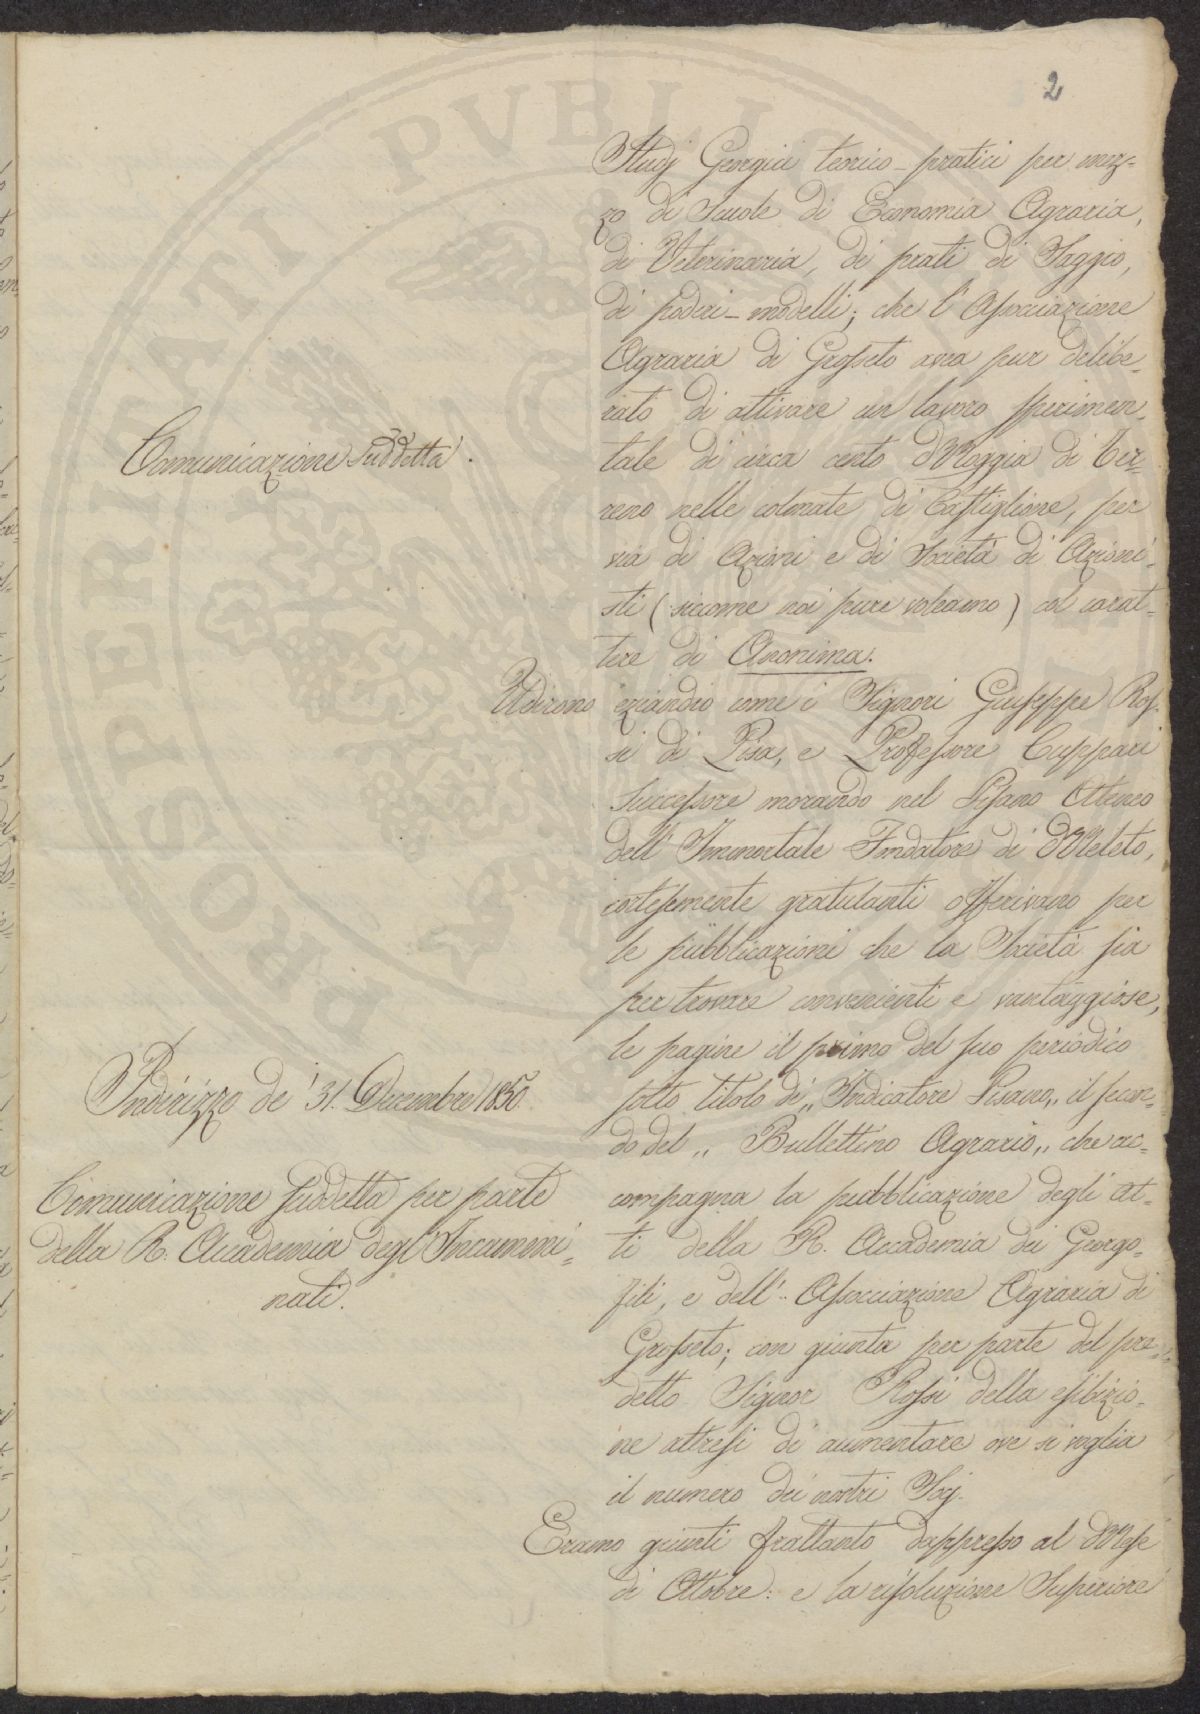 2
Studj Georgici teorico-pratici per mez-
zo di Scuole di Economia Agraria,
di Veterinaria, di prati di Saggio,
di poderi-modelli; che l'Associazione
Agraria di Grosseto avea pur delibe-
rato di attivare un lavoro sperimen-
tale di circa cento Moggia di ter-
reno nelle colmate di Castiglione, per
via di Azioni e di Società di Azioni-
sti (siccome noi pure voleamo) col carat-
tere di Anonima.
Comunicazione suddetta.
Udirono eziandio come i Signori Giuseppe Ros-
si di Pisa, e Professore Cuppari
Successore morando nel Pisano Ateneo
dell'Immortale Fondatore di Meleto,
cortesemente gratulanti offerivano per
le pubblicazioni che la Società sia
per trovare convenienti e vantaggiose,
le pagine il primo del suo periodico
sotto titolo di „Indicatore Pisano„ il secon-
do del „Bullettino Agrario„ che ac-
compagna la pubblicazione degli At-
ti della R. Accademia dei Georgo-
fili, e dell'Associazione Agraria di
Grosseto; con giunta per parte del pre-
detto Signor Rossi della esibizio-
ne altresì di aumentare ove si voglia
il numero dei nostri Socj.
Indirizzo de' 31. Decembre 1850.
Comunicazione suddetta per parte
della R. Accademia degl'Incammi-
nati.
Eramo giunti frattanto dappresso al Mese
di Ottobre: e la risoluzione Superiore
PROSPERITATI PVBLIC